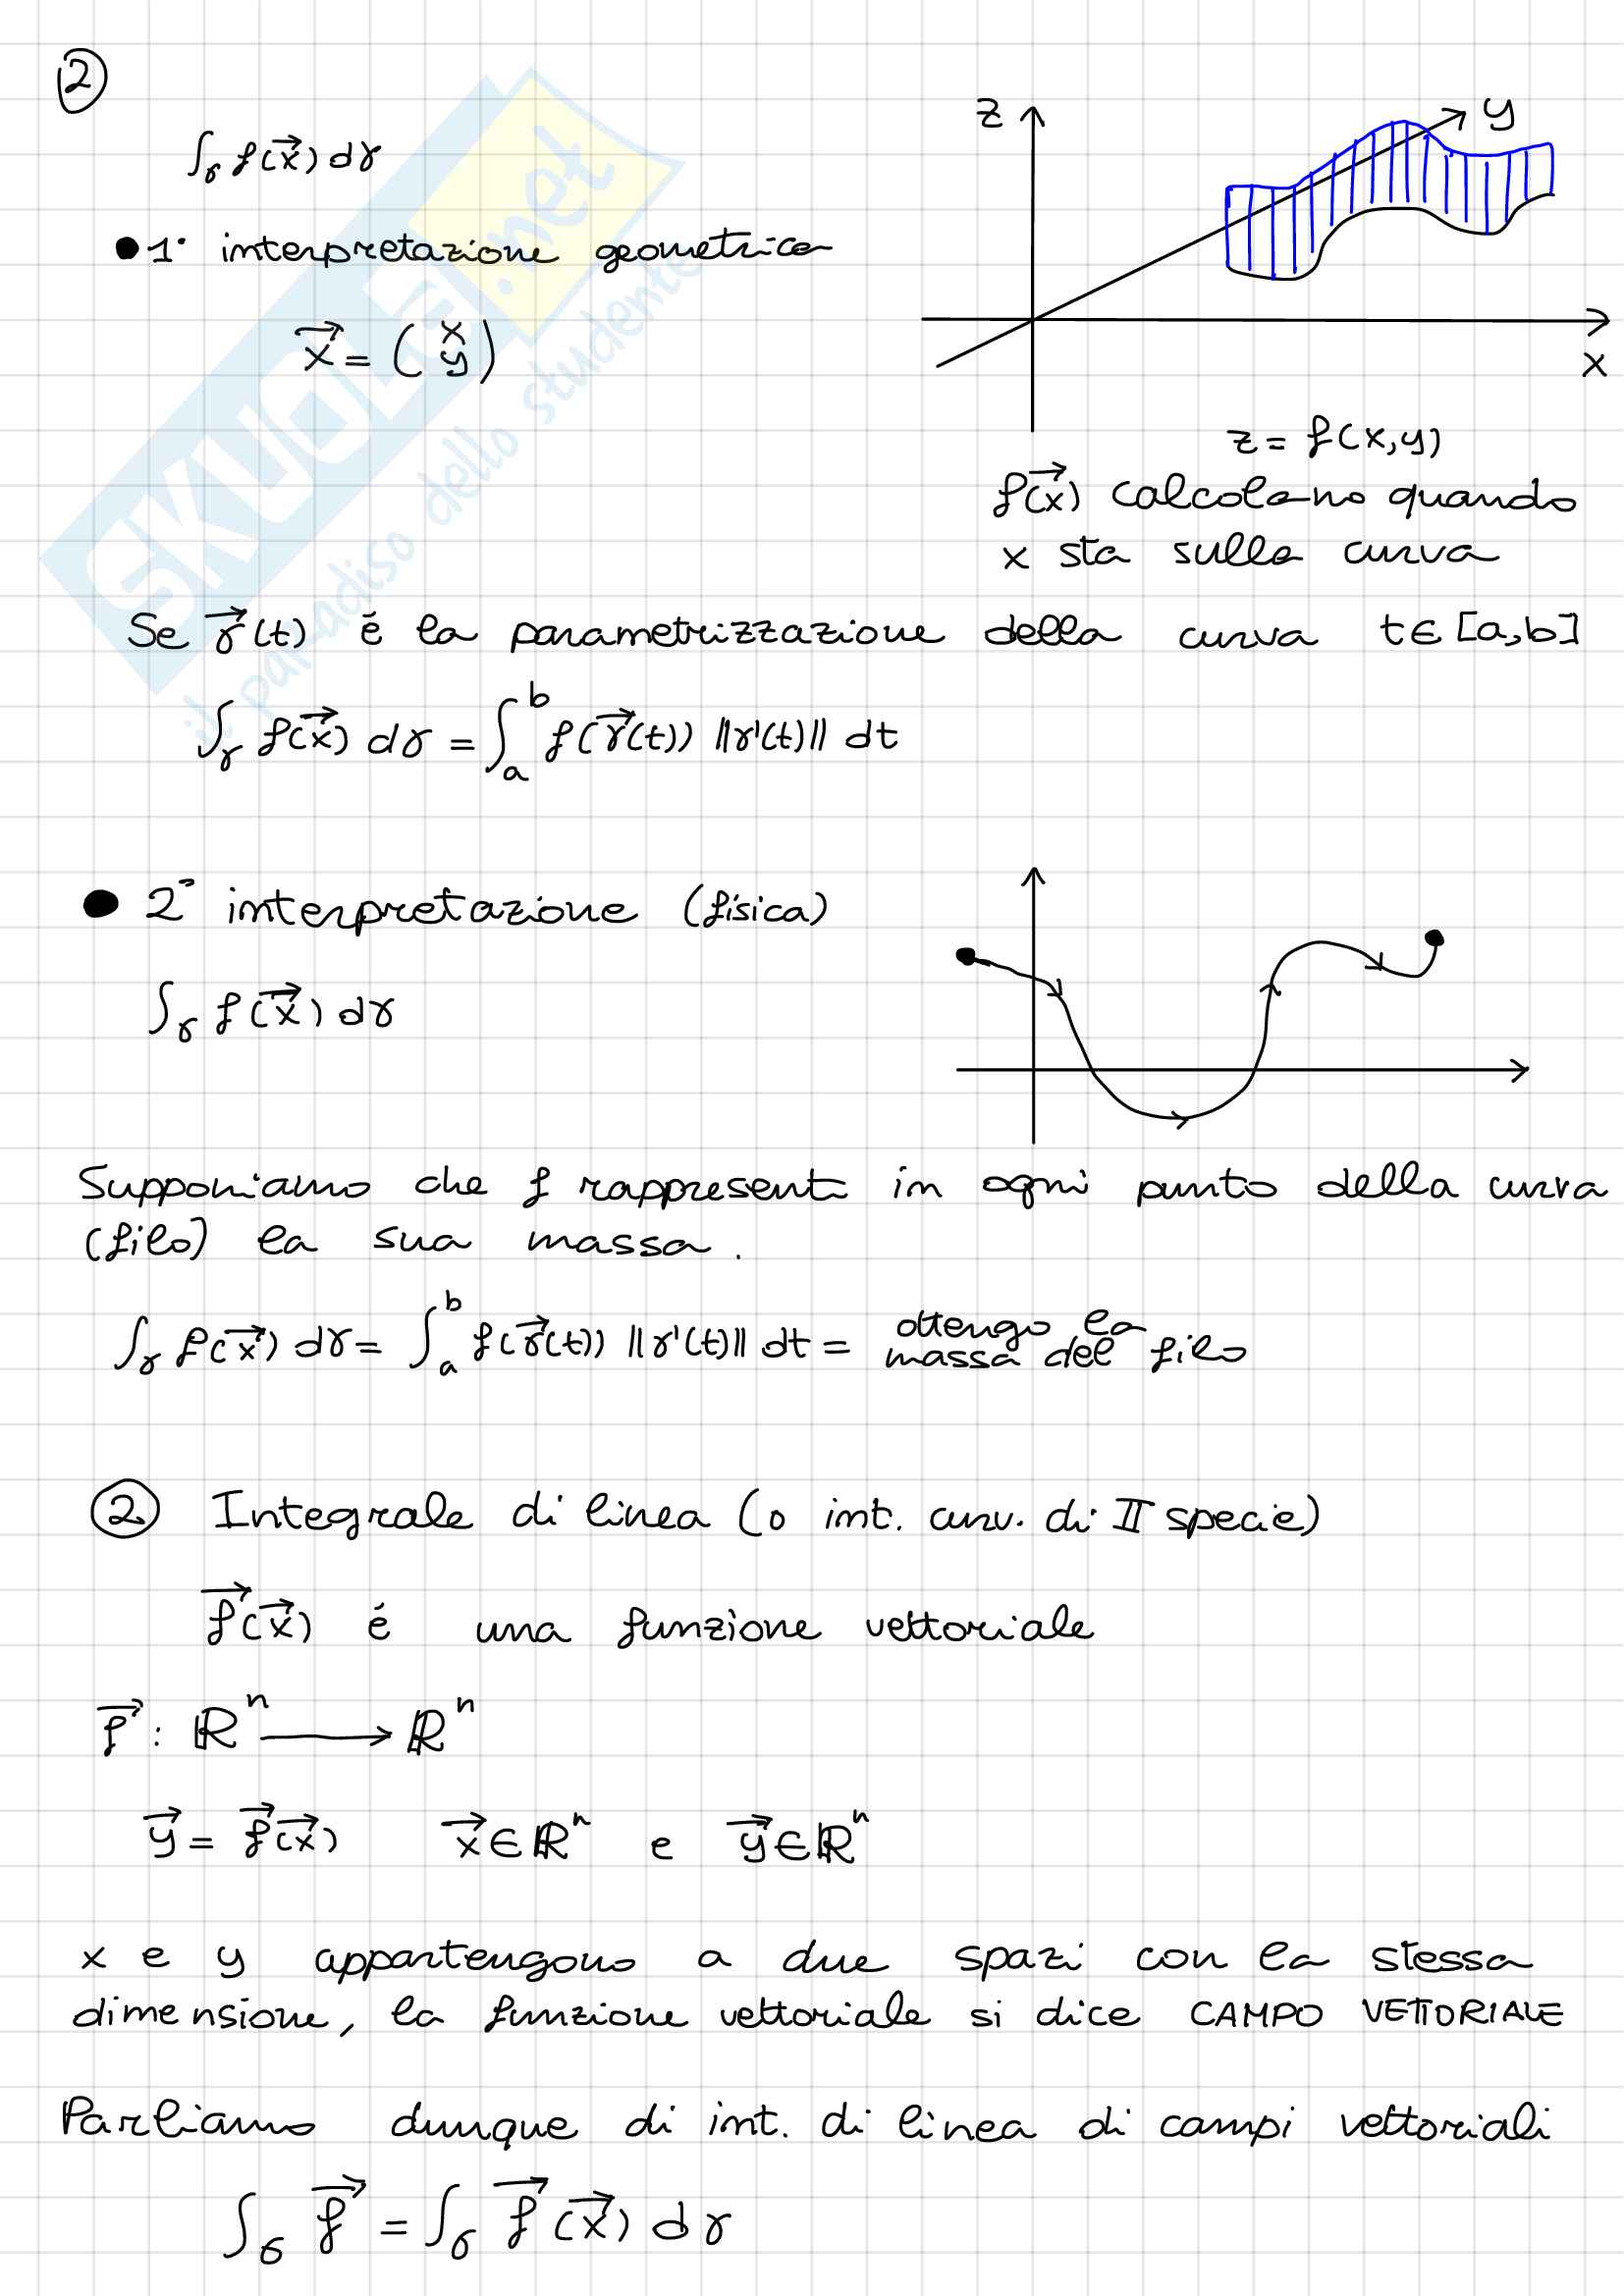 ②
∫_γ f(x⃗) dγ
z
y
SKUOLA.net
il paradiso dello studente
● 1° interpretazione geometrica
x⃗ = (x y)
x
z = f(x,y)
f(x⃗) calcolano quando
x sta sulla curva
Se γ⃗(t) é la parametrizzazione della curva t∈[a,b]
∫_γ f(x⃗) dγ = ∫_a^b f(γ⃗(t)) ||γ'(t)|| dt
● 2° interpretazione (fisica)
∫_γ f(x⃗) dγ
Supponiamo che f rappresenti in ogni punto della curva
(filo) la sua massa.
∫_γ f(x⃗) dγ = ∫_a^b f(γ⃗(t)) ||γ'(t)|| dt = ottengo la
massa del filo
② Integrale di linea (o int. curv. di II specie)
f⃗(x⃗) é una funzione vettoriale
f⃗: ℝ^n ⟶ ℝ^n
y⃗ = f⃗(x⃗) x⃗∈ℝ^n e y⃗∈ℝ^n
x e y appartengono a due spazi con la stessa
dimensione, la funzione vettoriale si dice CAMPO VETTORIALE
Parliamo dunque di int. di linea di campi vettoriali
∫_σ f⃗ = ∫_σ f⃗(x⃗) dγ